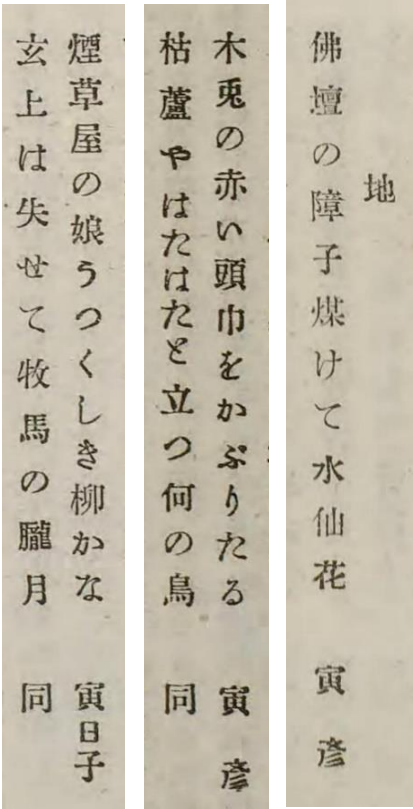 地
佛壇の障子煤けて水仙花　寅彦
木兎の赤い頭巾をかぶりたる　寅彦
枯蘆やはたはたと立つ何の鳥　同
煙草屋の娘うつくしき柳かな　寅日子
玄上は失せて牧馬の朧月　同